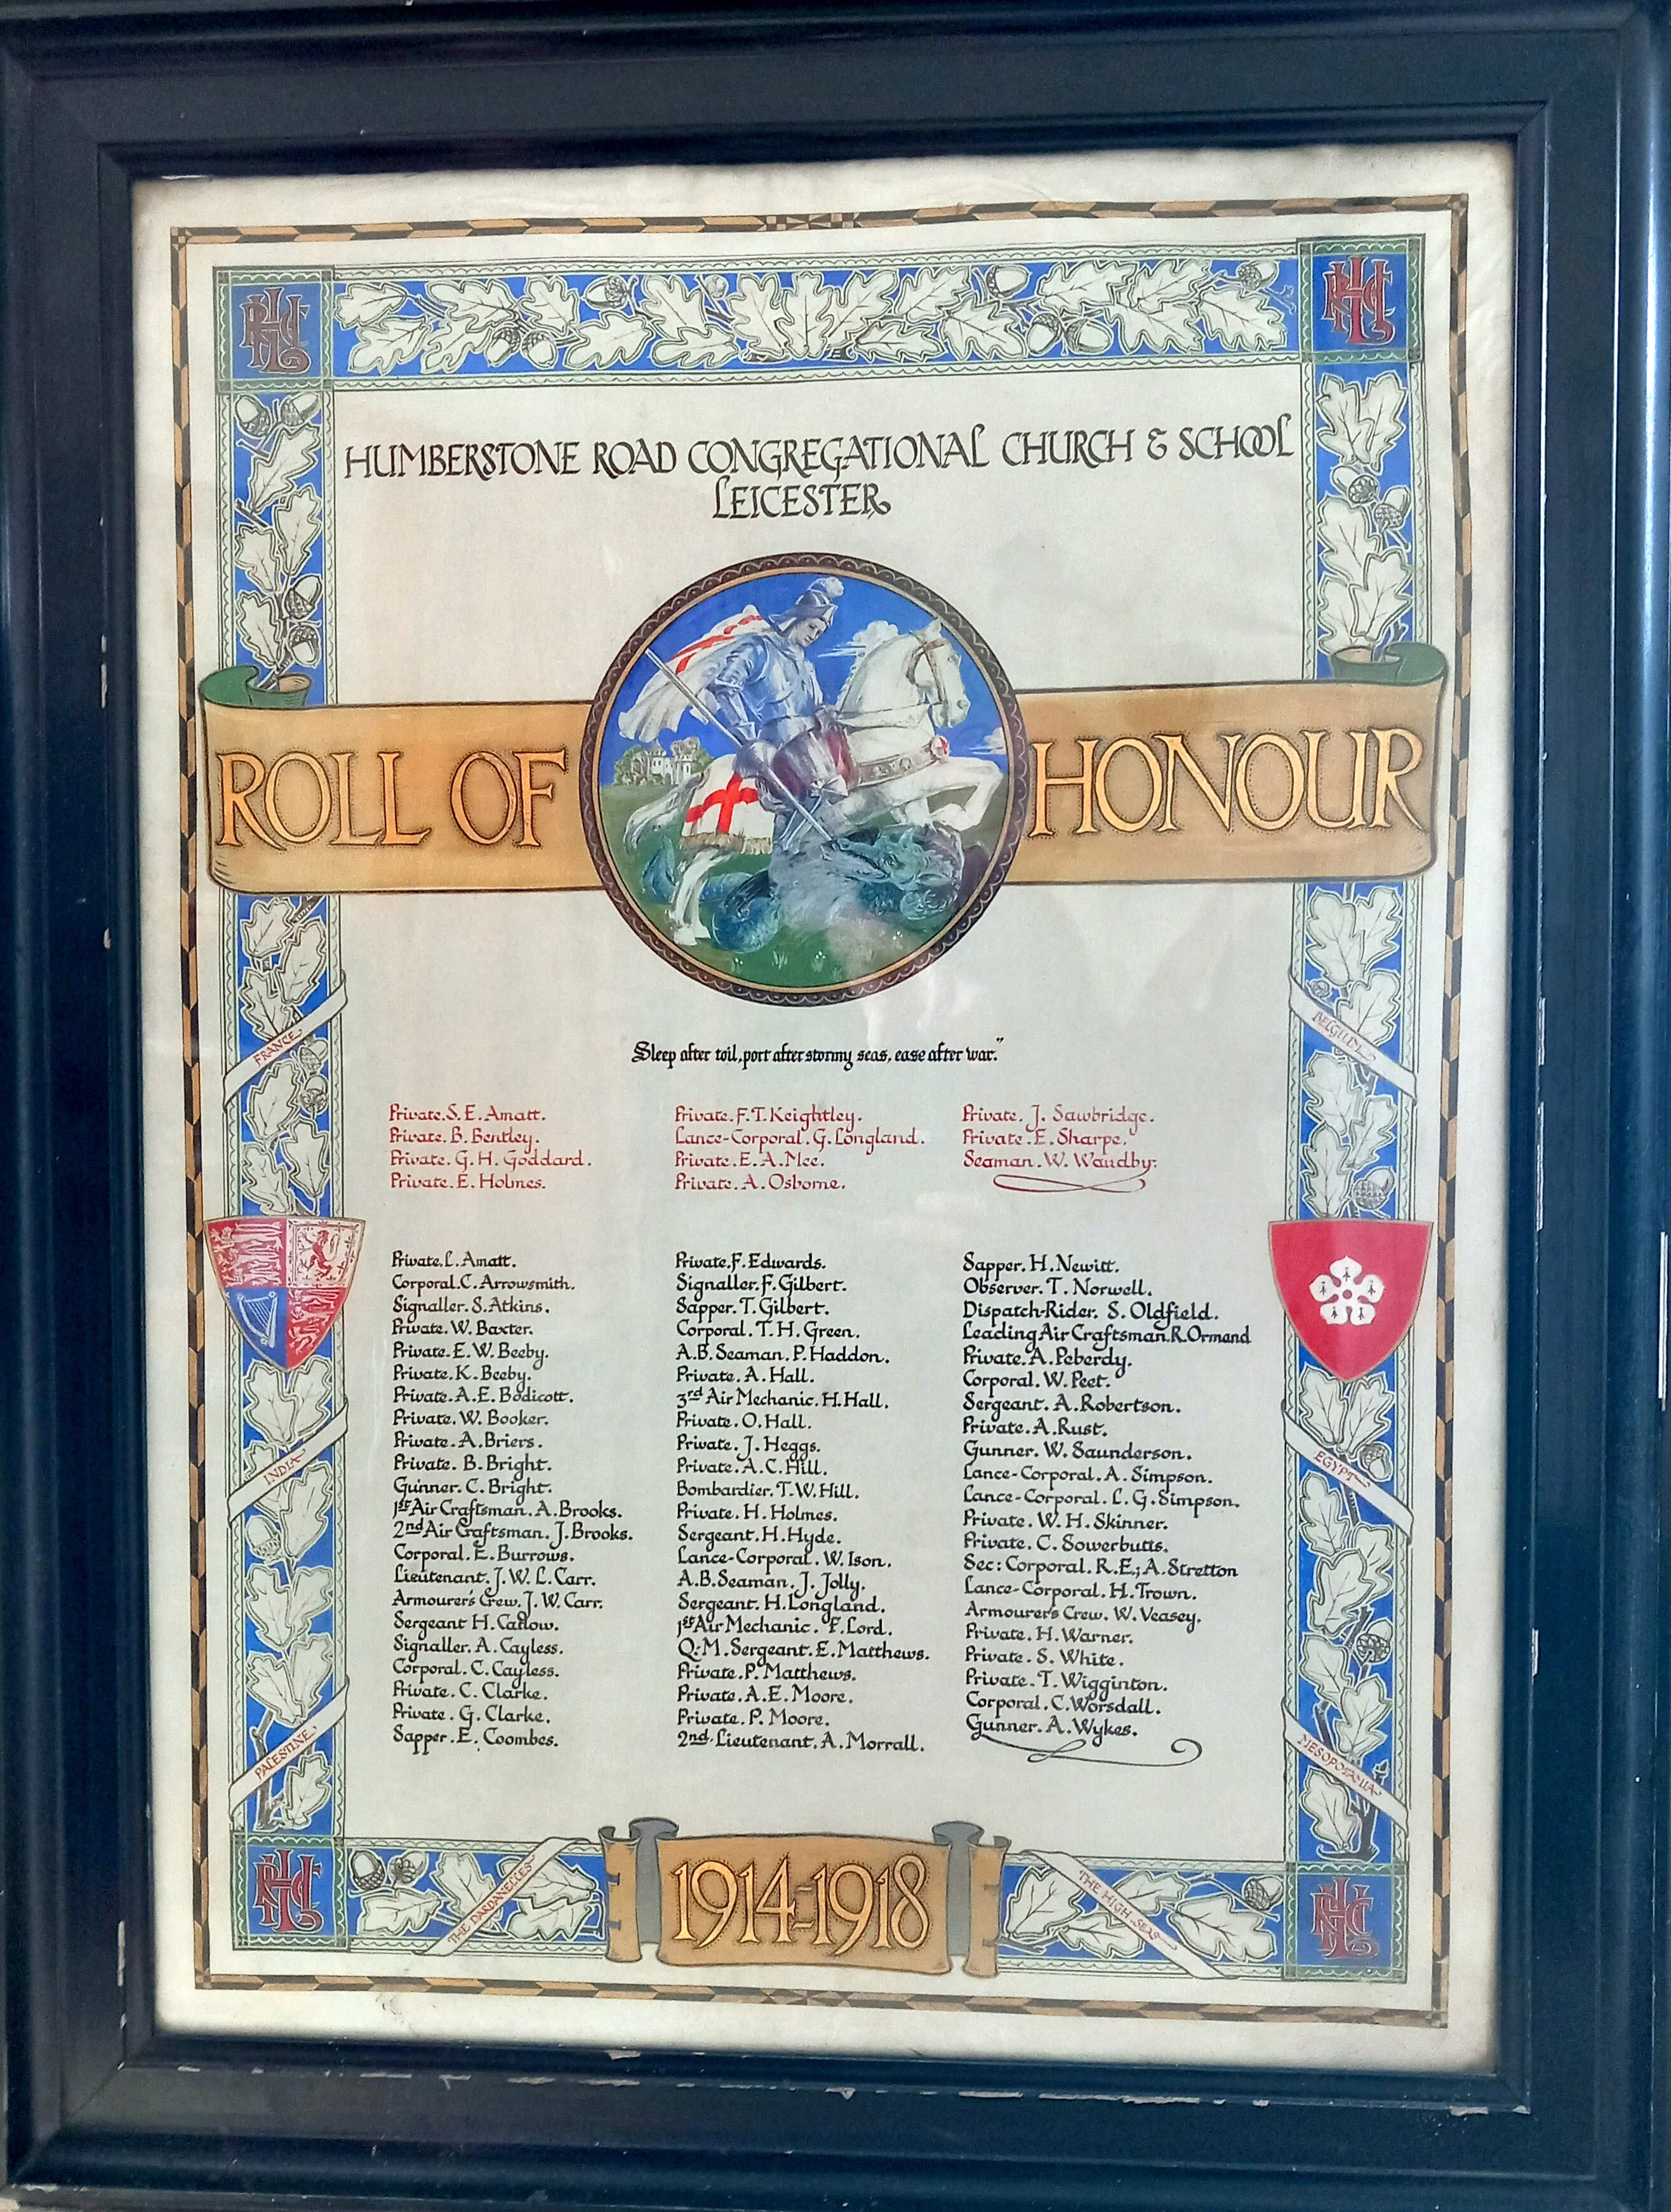 HUMBERSTONE ROAD CONGREGATIONAL CHURCH & SCHOOL
LEICESTER
ROLL OF HONOUR
Sleep after toil, port after stormy seas, ease after war."
FRANCE
BELGIUM
Private. S. E. Amatt.
Private. B. Bentley.
Private. G. H. Goddard.
Private. E. Holmes.
Private. F. T. Keightley.
Lance-Corporal. G. Longland.
Private. E. A. Mee.
Private. A. Osborne.
Private. J. Sawbridge.
Private. E. Sharpe.
Seaman. W. Waudby.
Private. L. Amatt.
Corporal. C. Arrowsmith.
Signaller. S. Atkins.
Private. W. Baxter.
Private. E. W. Beeby.
Private. K. Beeby.
Private. A. E. Bodicott.
Private. W. Booker.
Private. A. Briers.
Private. B. Bright.
Gunner. C. Bright.
1st Air Craftsman. A. Brooks.
2nd Air Craftsman. J. Brooks.
Corporal. E. Burrows.
Lieutenant. J. W. L. Carr.
Armourer's Crew. J. W. Carr.
Sergeant H. Catlow.
Signaller. A. Cayless.
Corporal. C. Cayless.
Private. C. Clarke.
Private. G. Clarke.
Sapper. E. Coombes.
Private. F. Edwards.
Signaller. F. Gilbert.
Sapper. T. Gilbert.
Corporal. T. H. Green.
A.B. Seaman. P. Haddon.
Private. A. Hall.
3rd Air Mechanic. H. Hall.
Private. O. Hall.
Private. J. Heggs.
Private. A. C. Hill.
Bombardier. T. W. Hill.
Private. H. Holmes.
Sergeant. H. Hyde.
Lance-Corporal. W. Ison.
A.B. Seaman. J. Jolly.
Sergeant. H. Longland.
1st Air Mechanic. F. Lord.
Q.M. Sergeant. E. Matthews.
Private. P. Matthews.
Private. A. E. Moore.
Private. P. Moore.
2nd. Lieutenant. A. Morrall.
Sapper. H. Newitt.
Observer. T. Norwell.
Dispatch-Rider. S. Oldfield.
Leading Air Craftsman. R. Ormand
Private. A. Peberdy.
Corporal. W. Peet.
Sergeant. A. Robertson.
Private. A. Rust.
Gunner. W. Saunderson.
Lance-Corporal. A. Simpson.
Lance-Corporal. L. G. Simpson.
Private. W. H. Skinner.
Private. C. Sowerbutts.
Sec: Corporal. R.E; A. Stretton
Lance-Corporal. H. Trown.
Armourer's Crew. W. Veasey.
Private. H. Warner.
Private. S. White.
Private. T. Wigginton.
Corporal. C. Worsdall.
Gunner. A. Wykes.
INDIA
EGYPT
PALESTINE
MESOPOTAMIA
THE DARDANELLES
1914-1918
THE HIGH SEAS